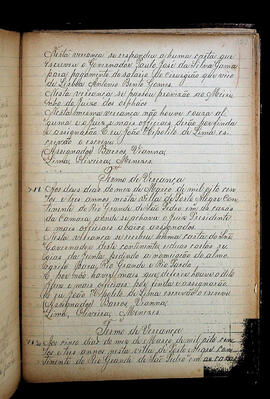 Nesta vereança se respondeu a huma carta que
escreveu o Governador Paulo José da Silva Gama
para pagamento do salario do cirurgião que veio
de Lisboa Antonio Bento Gomes.
Nesta vereança se passou provisão ao Meiri
nho do Juizo dos orphãos
Nesta mesma vereança não houve cousa al
guma e o Juiz e mais officiaes derão por finda
e assignarão. E eu João Hypolito de Lima es
crivão o escrevi.
Assignados Barros Vianna,
Lima, Oliveira, Menezes
Termo de Vereança
Aos dois dias do mez de Março de mil oito cen
tos e tres annos nesta villa de Porto Alegre Con
tinente do Rio Grande de São Pedro em as casas
da Camara, donde se achava o Juiz Presidente
e mais officiaes abaixo assignados.
Nesta vereança se recebeu huma carta do
Governador deste continente,
da Junta pedindo a nomeação do almo
para Rio Grande e Rio Pardo.
E por não haver mais que deferir houve o dito
Juiz e mais officiaes por finda e assignarão
e eu João Hypolito de Lima escrivão o escrevi
Assignados Barros Vianna,
Lima, Oliveira, Menezes
Termo de Vereança
Aos cinco dias do mez de Março de mil oito cen
tos e tres annos nesta villa de Porto Alegre Con
tinente do Rio Grande de São Pedro em as casas